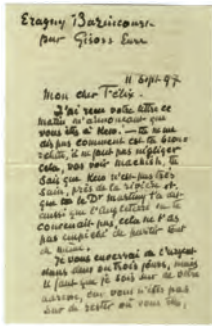 Eragny Bazincourt
par Gisors Eure
11 Sept 97
Mon cher Félix.
J'ai reçu votre lettre ce
matin m'annonçant que
vous êtes à Kew. — tu ne me
dis pas comment est ta bron
chite, il ne faut pas négliger
cela, vas voir
sais que Kew n'est pas très
sain, près de la rivière et,
que le Dr
aussi que l'Angleterre ne te
convenait pas, cela ne t'as
pas empêché de partir tout
de même.
Je vous enverrai de l'argent
dans deux ou trois jours, mais
il faut que je sois sur de votre
adresse, car vous n'êtes pas
sur de rester où vous êtes,